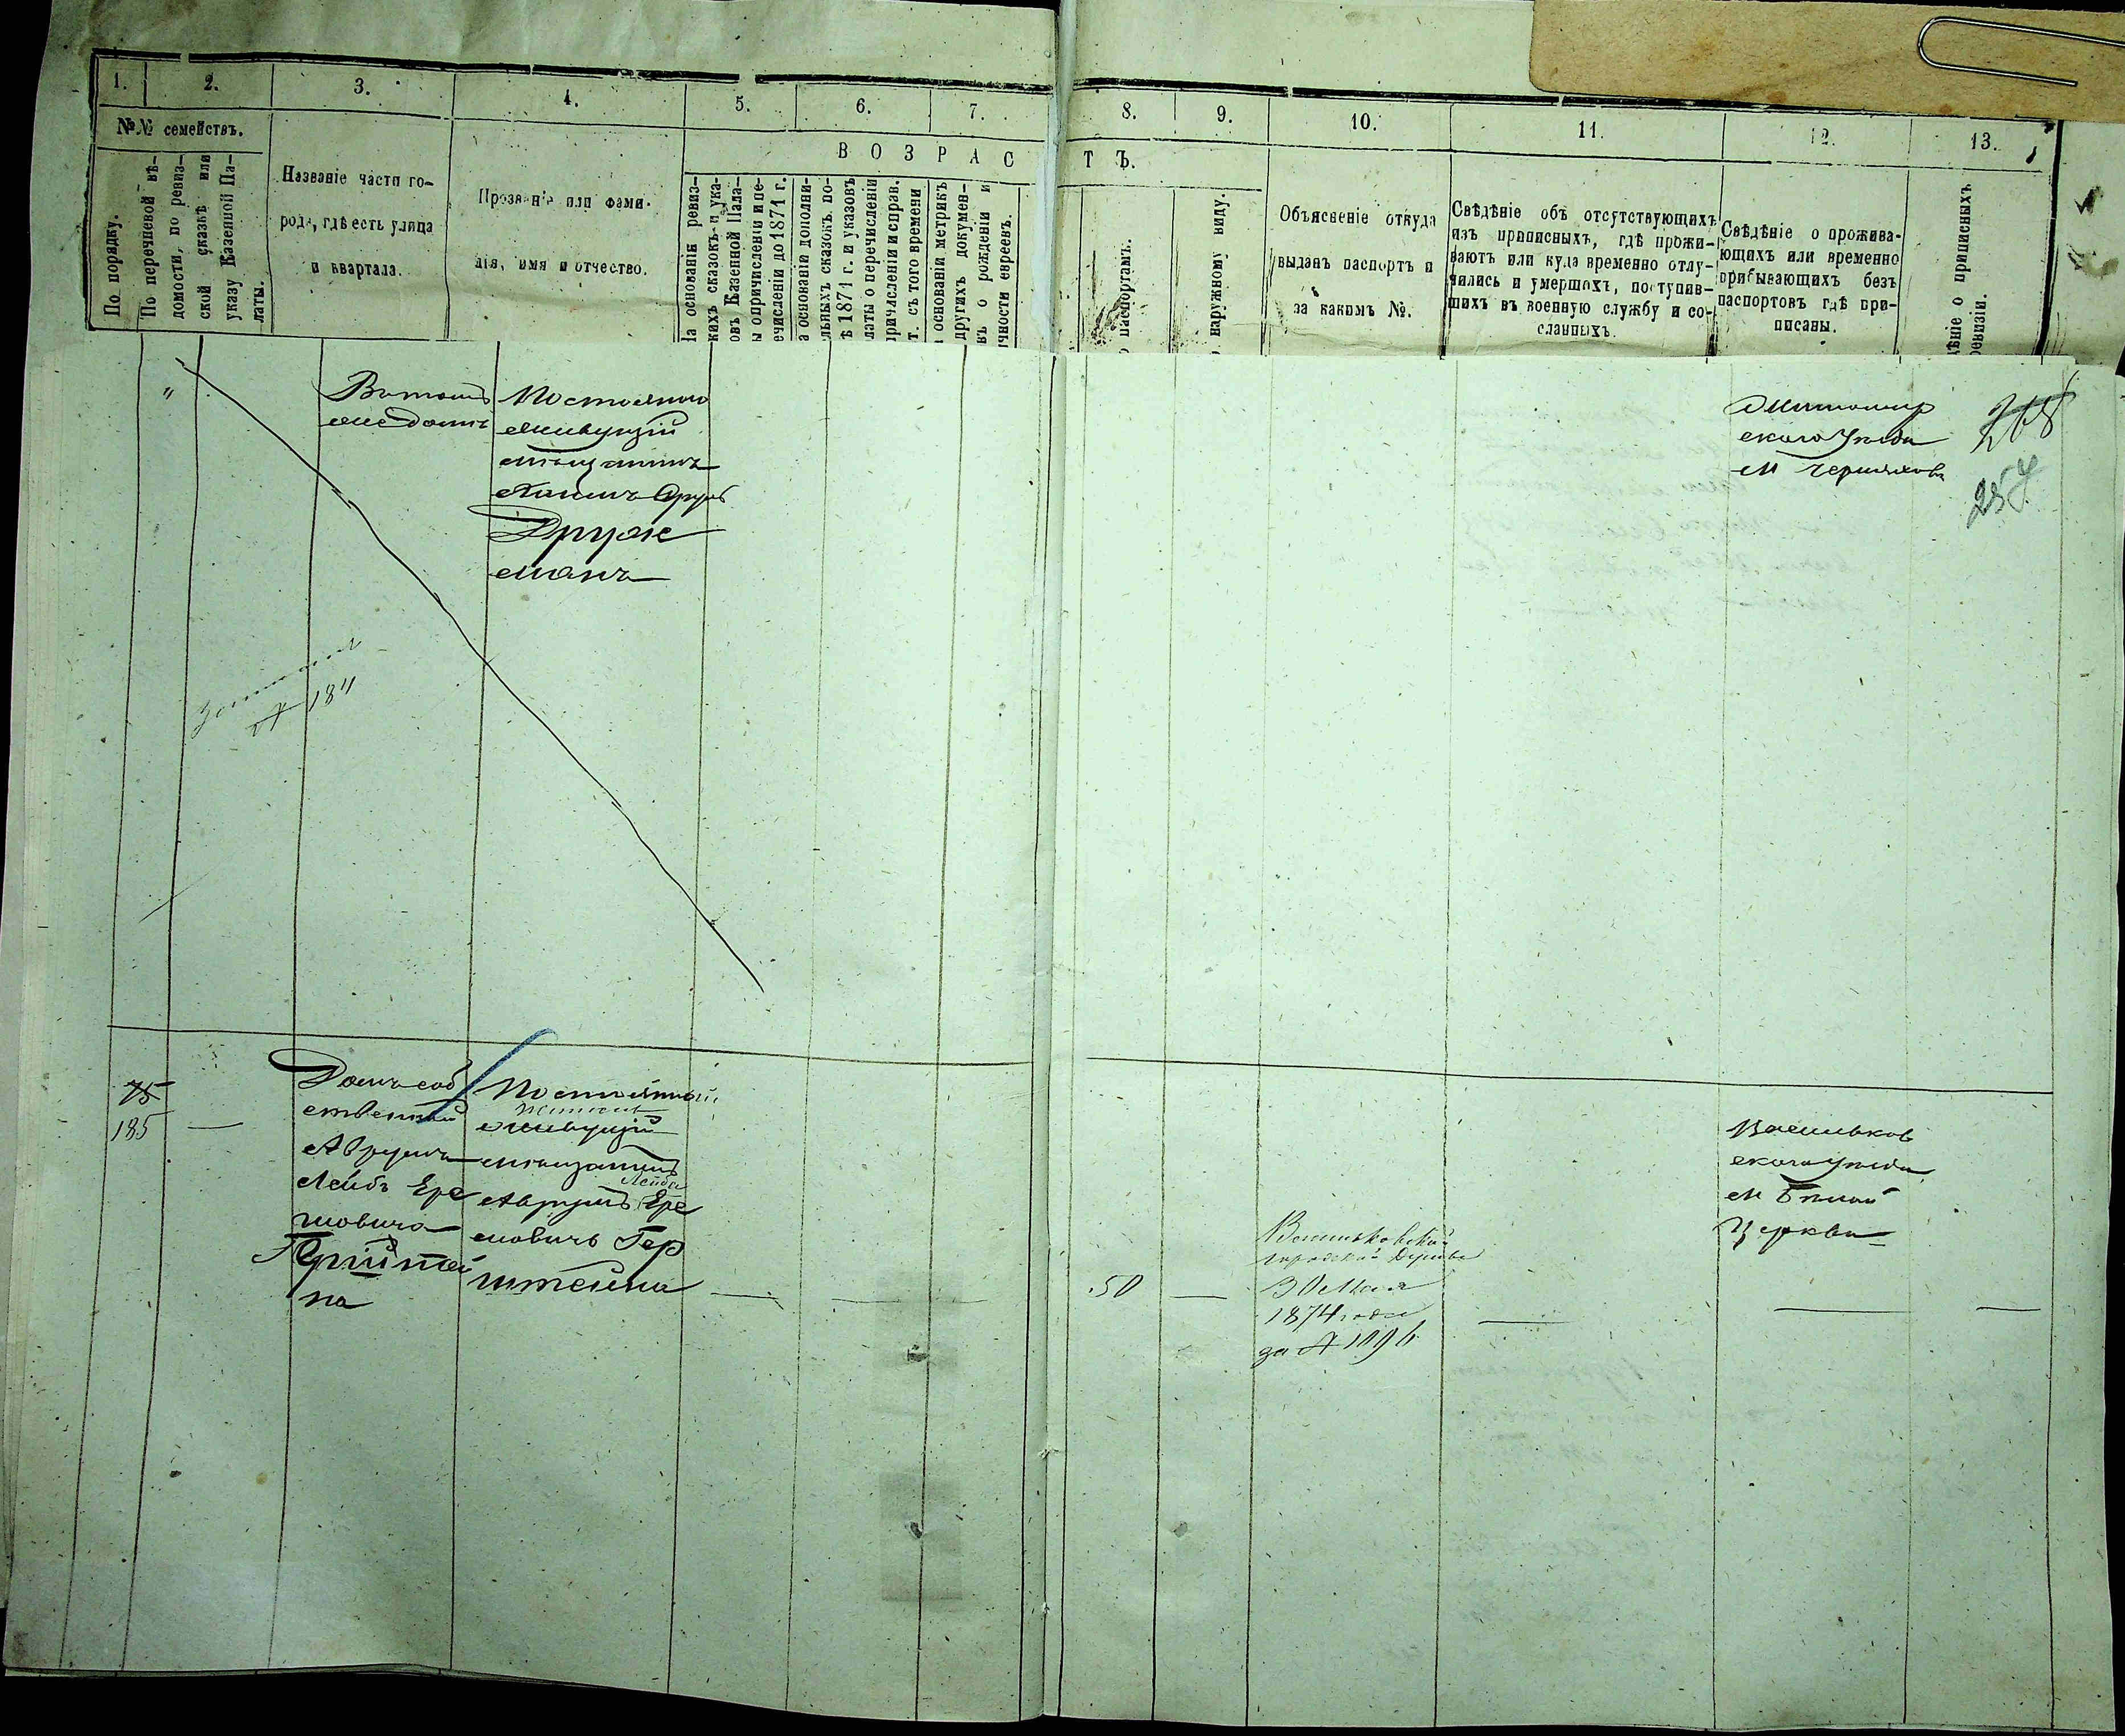 1.
2.
3.
4.
5.
6.
7.
8.
9.
10.
11.
12.
13.
№№ семействъ.
По порядку.
По перечневой вѣ-
домости, по ревиз-
ской сказкѣ или
указу Казенной Па-
латы.
Названіе части го-
рода, гдѣ есть улица
и квартала.
Прозваніе или фами-
лія, имя и отчество.
ВОЗРАС
ТЪ.
На основаніи ревиз-
скихъ сказокъ и ука-
овъ Казенной Пала-
ы опричисленіи и пе-
ечисленіи до 1871 г.
а основаніи дополни-
льныхъ сказокъ по-
ѣ 1871 г. и указовъ
латы о перечисленіи
причисленіи и справ.
т. съ того времени
основаніи метрикъ
другихъ докумен-
въ о рожденіи и
ичности евреевъ.
о паспортамъ.
о наружному виду.
Объясненіе откуда
выданъ паспортъ и
за какимъ №.
Свѣдѣніе объ отсутствующихъ
изъ приписныхъ, гдѣ прожи-
ваютъ или куда временно отлу-
чились и умершихъ, поступив-
шихъ въ военную службу и со-
сланныхъ.
Свѣдѣніе о прожива-
ющихъ или временно
прибывающихъ безъ
паспортовъ гдѣ при-
писаны.
дѣніе о приписныхъ
ревизіи.
"
Въ томъ
же домѣ
Постоянно
живущій
мѣщанинъ
Хаимъ
Друк
манъ
Житомир
скаго Уѣзда
М Черняхова
268
257
184
75
185
Домъ соб
ственный
Аврума
Лейбъ Ере
мовича
Герштей
на
Постоянный
живущій
мѣщанинъ
Лейба
Аврумъ Ере
мовичъ Гер
штейна
50
Васильковской
городской Думы
30 Мая
1874 года
за № 1096
Васильков
скаго Уѣзда
М Бѣлой
Церкви